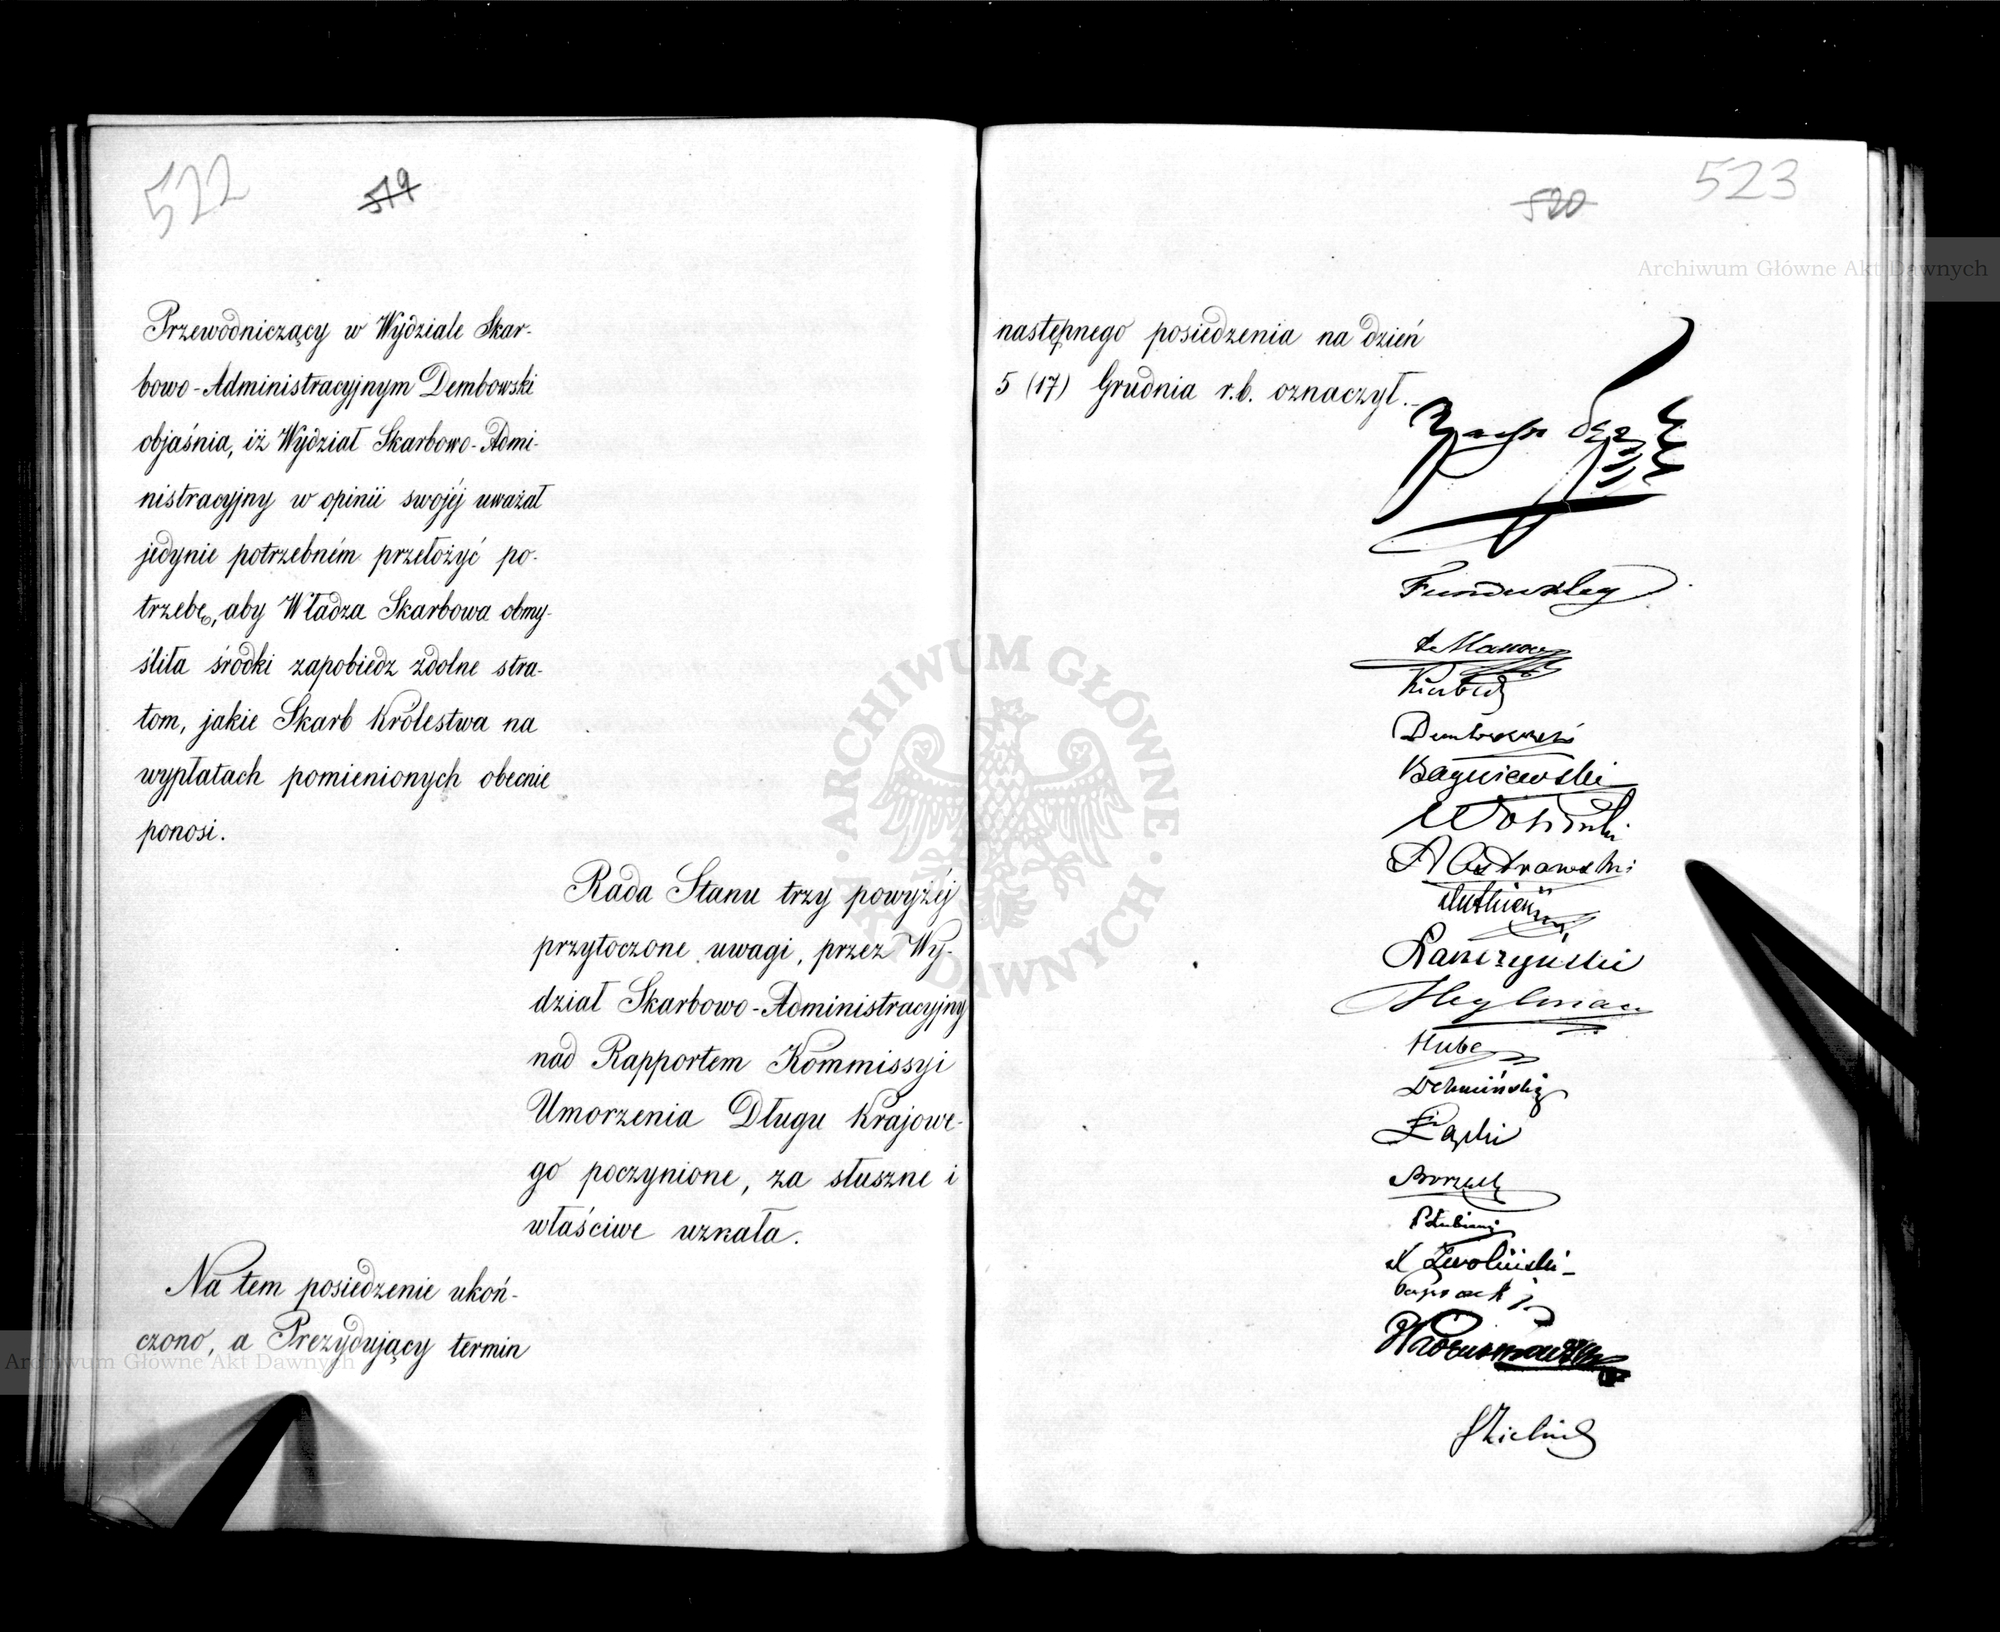 522
519
Przewodniczący w Wydziale Skar-
bowo-Administracyjnym Dembowski
objaśnia, iż Wydział Skarbowo-Admi-
nistracyjny w opinii swojéj uważał
jedynie potrzebném przełożyć po-
trzebę, aby Władza Skarbowa obmy-
śliła środki zapobiedz zdolne stra-
tom, jakie Skarb Królestwa na
wypłatach pomienionych obecnie
ponosi.
Rada Stanu trzy powyżéj
przytoczone uwagi, przez Wy-
dział Skarbowo-Administracyjny
nad Rapportem Kommissyi
Umorzenia Długu Krajowe-
go poczynione, za słuszne i
właściwe uznała.
Na tem posiedzenie ukoń-
czono, a Prezydujący termin
Archiwum Główne Akt Dawnych
523
520
Archiwum Główne Akt Dawnych
następnego posiedzenia na dzień
5 (17) Grudnia r.b. oznaczył.
Fundukley
Dembowski
Bagniewski
Woliński
A Ostrowski
Łaszczyński
Heylman
Hube
Łąski
Łubieński
Zwoliński
ARCHIWUM GŁÓWNE AKT DAWNYCH